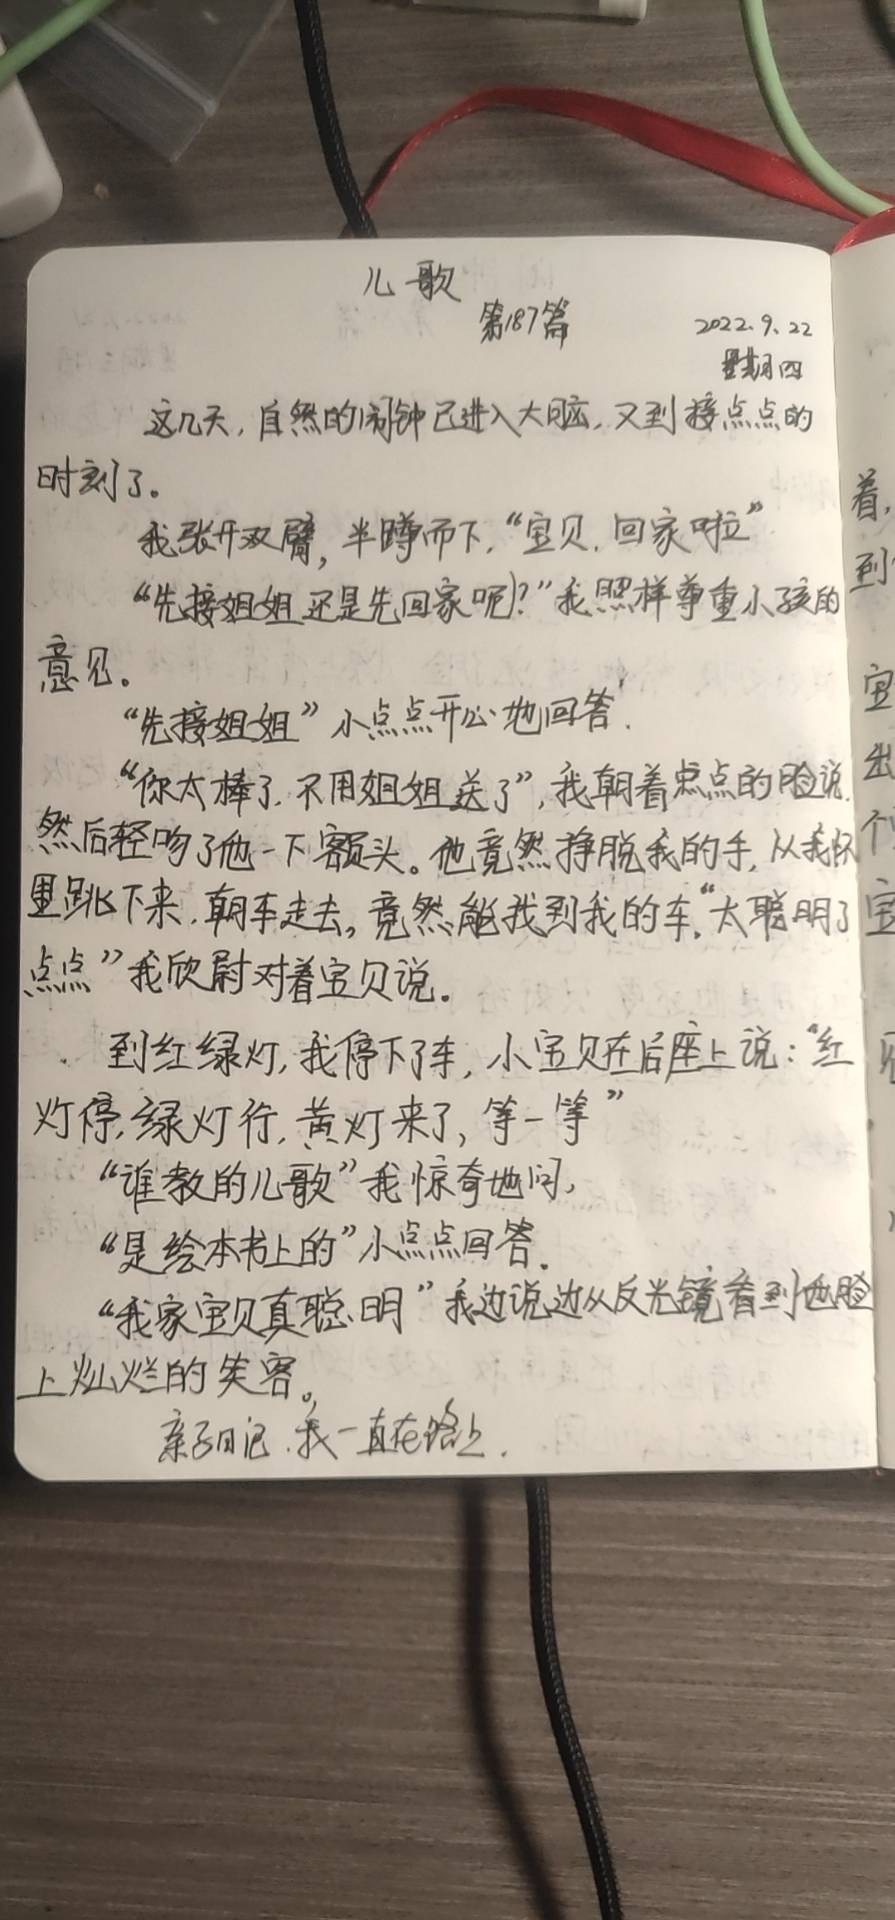 儿歌
第187篇
2022.9.22
星期四
这几天,自然的闹钟已进入大脑,又到接点点的
时刻了。
我张开双臂,半蹲而下,“宝贝,回家啦”
“先接姐姐还是先回家呢?”我照样尊重小孩的
意见。
“先接姐姐”小点点开心地回答.
“你太棒了,不用姐姐送了”,我朝着点点的脸说,
然后轻吻了他一下额头。他竟然挣脱我的手,从我怀
里跳下来,朝车走去,竟然能找到我的车,“太聪明了
点点”我欣尉对着宝贝说。
到红绿灯,我停下了车,小宝贝在后座上说:“红
灯停,绿灯行,黄灯来了,等一等”
“谁教的儿歌”我惊奇地问,
“是绘本书上的”小点点回答.
“我家宝贝真聪明”我边说边从反光镜看到他脸
上灿烂的笑容。
亲子日记,我一直在路上.
着,
到
宝
出
个
宝